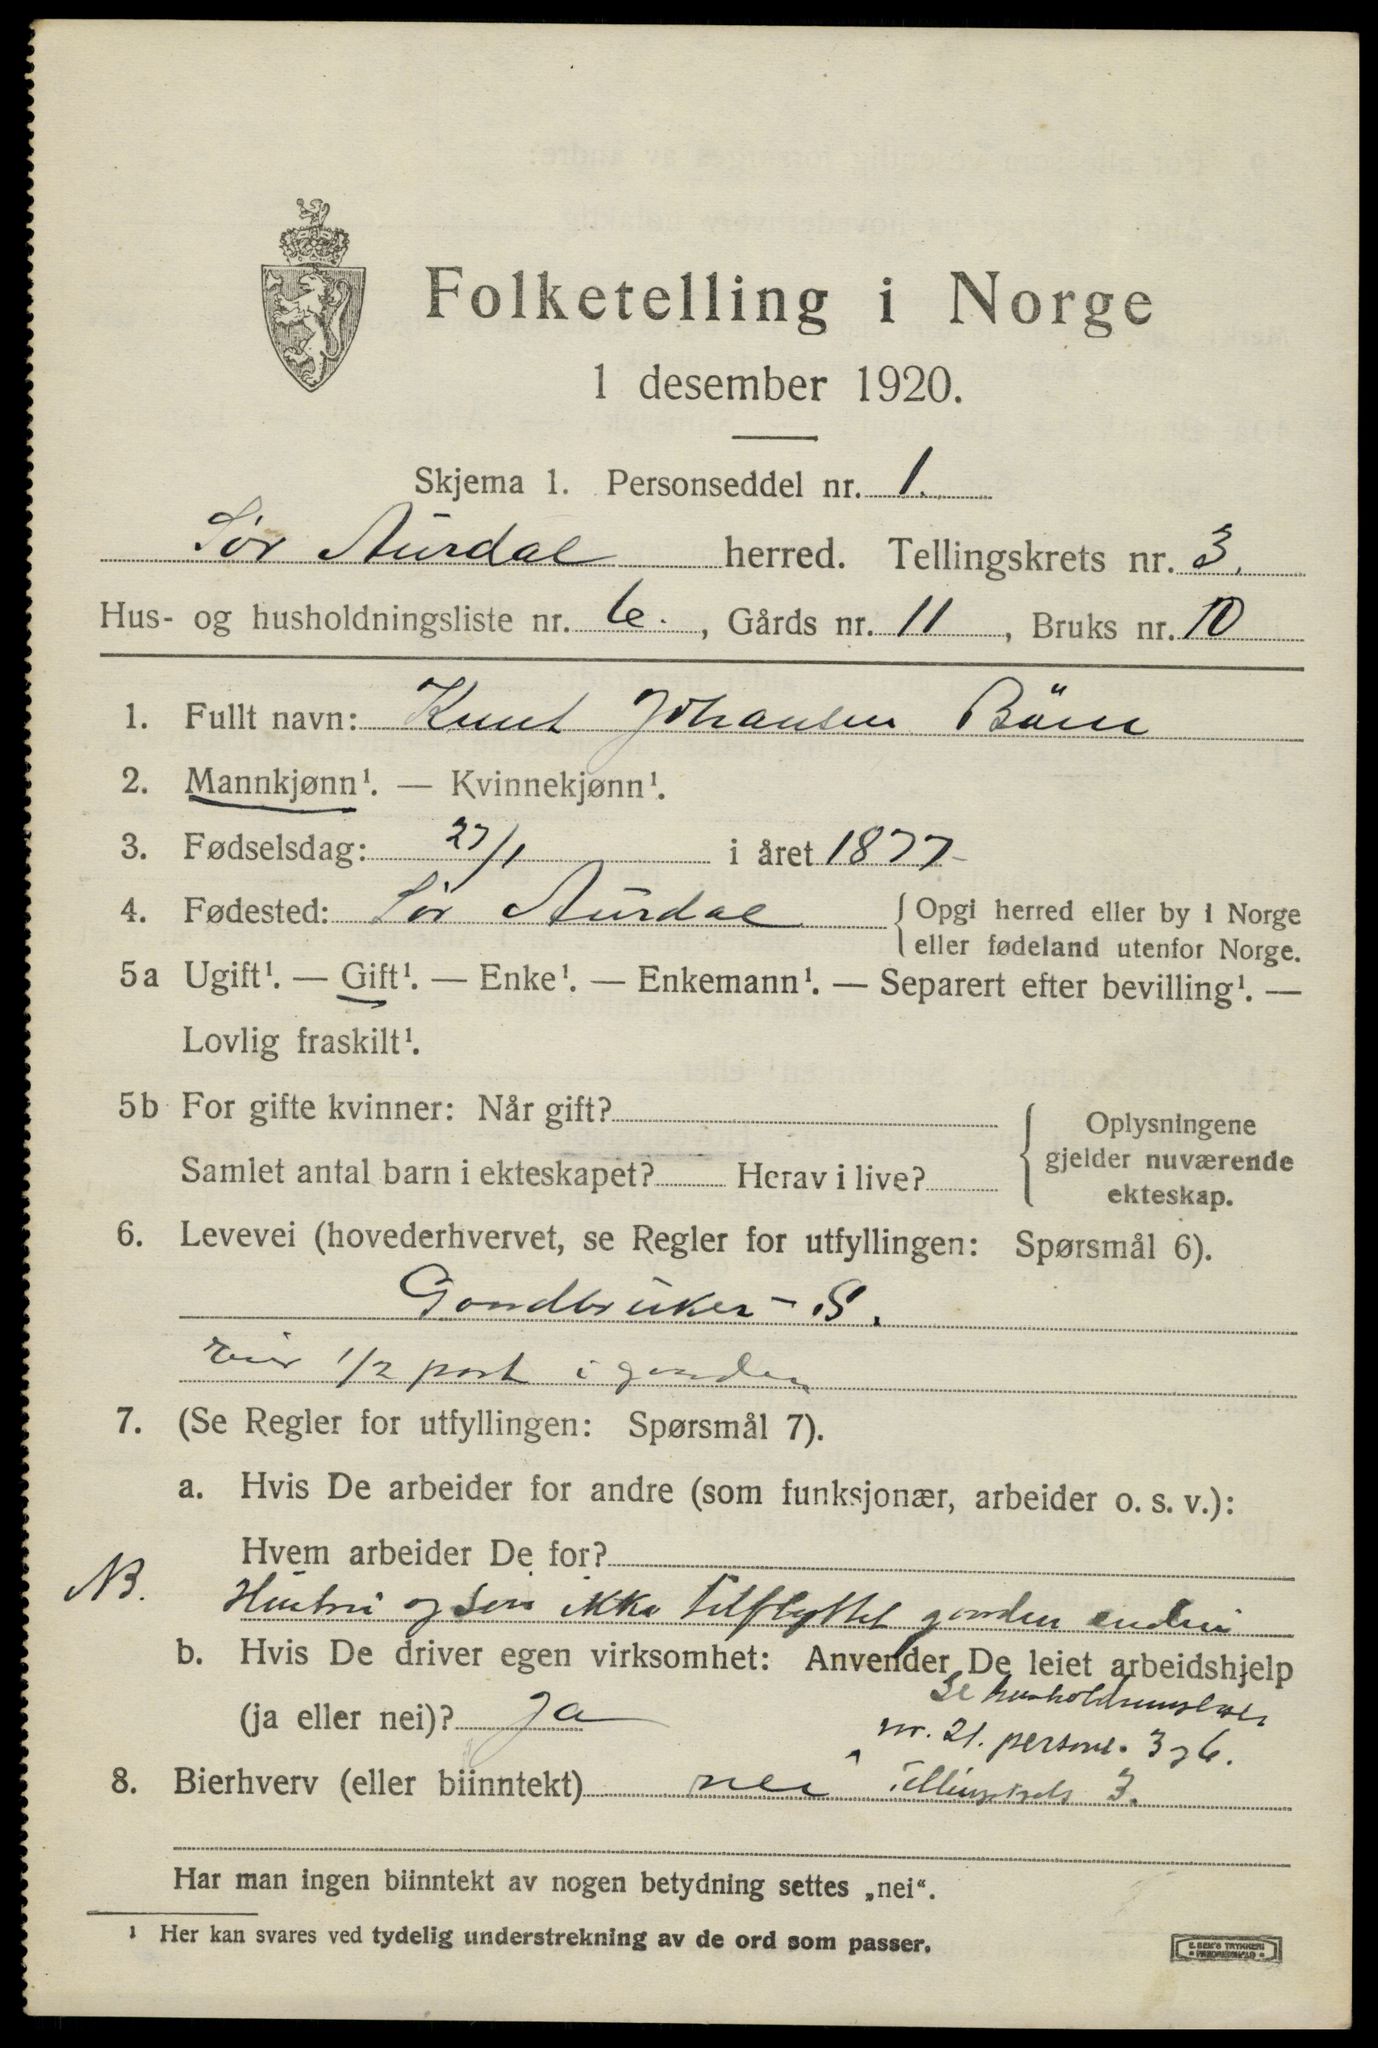 Folketelling i Norge
1 desember 1920.
Skjema 1. Personseddel nr. 1.
Sør Aurdal herred. Tellingskrets nr. 3.
Hus- og husholdningsliste nr. 6. , Gårds nr. 11 , Bruks nr. 10
1. Fullt navn: Knut Johansen
2. Mannkjønn¹. — Kvinnekjønn¹.
3. Fødselsdag: 27/1 i året 1877
4. Fødested: Sør Aurdal { Opgi herred eller by i Norge
eller fødeland utenfor Norge.
5a Ugift¹. — Gift¹. — Enke¹. — Enkemann¹. — Separert efter bevilling¹. —
Lovlig fraskilt¹.
5b For gifte kvinner: Når gift?
Samlet antal barn i ekteskapet? Herav i live?
{ Oplysningene
gjelder nuværende
ekteskap.
6. Levevei (hovederhvervet, se Regler for utfyllingen: Spørsmål 6).
Gaardbruker - S.
eier 1/2 part i gaarden
7. (Se Regler for utfyllingen: Spørsmål 7).
a. Hvis De arbeider for andre (som funksjonær, arbeider o. s. v.):
Hvem arbeider De for?
NB. Hustru og søn ikke tilflyttet gaarden endnu
b. Hvis De driver egen virksomhet: Anvender De leiet arbeidshjelp
(ja eller nei)? Ja
Se husholdningsliste
nr. 21. person. 3 og 6.
8. Bierhverv (eller biinntekt) nei Tellingskrets 3.
Har man ingen biinntekt av nogen betydning settes „nei“.
¹ Her kan svares ved tydelig understrekning av de ord som passer.
E. SEM'S TRYKKERI
FREDRIKSHALD